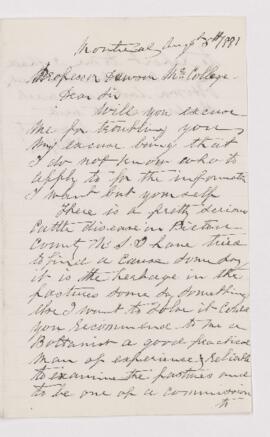 Montreal Augt 8th/881
Professor Dawson McG College
Dear Sir
Will you excuse
me for troubling you
my excuse being that
I do not know who to
apply to for the informatn
I want but yourself
There is a pretty serious
Cattle disease in Pictou
County N.S I have tried
to find a cause some day
it is the herbage in the
pastures some say something
else I want to solve it Could
you recommend to me a
Bottanist a good practical
man of experience & reliable
to examine the pastures and
to be one of a commission
to